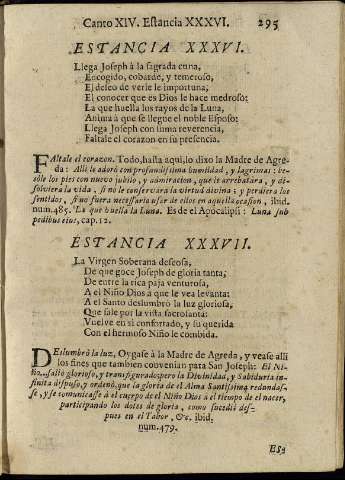 Canto XIV. Estancia XXXVI. 295
ESTANCIA XXXVI.
Llega Joseph à la sagrada cuna,
Encogido, cobarde, y temeroso,
El deseo de verle le importuna,
El conocer que es Dios le hace medroso:
La que huella los rayos de la Luna,
Anima à que se llegue el noble Esposo:
Llega Joseph con suma reverencia,
Faltale el corazon en su presencia.
Faltale el corazon. Todo, hasta aqui, lo dixo la Madre de Agre-
da: Alli le adorò con profundissima humildad, y lagrimas: be-
sòle los pies con nuevo jubilo, y admiracion, que le arrebatàra, y di-
solviera la vida, si no le conservàra la virtud divina; y perdiera los
sentidos, si no fuera necessario usar de ellos en aquella ocasion, ibid.
num. 485. La que huella la Luna. Es de el Apocalipsi: Luna sub
pedibus eius, cap. 12.
ESTANCIA XXXVII.
La Virgen Soberana deseosa,
De que goce Joseph de gloria tanta,
De entre la rica paja venturosa,
A el Niño Dios à que le vea levanta:
A el Santo deslumbrò la luz gloriosa,
Que sale por la vista sacrosanta:
Vuelve en si confortado, y su querida
Con el hermoso Niño le combida.
Deslumbrò la luz. Oygase à la Madre de Agreda, y vease alli
los fines que tambien convenian para San Joseph: El Ni-
ño.. saliò glorioso, y transfigurado; pero la Divinidad, y Sabiduria in-
finita dispuso, y ordenò, que la gloria de el Alma Santissima redundas-
se, y se comunicasse à el cuerpo de el Niño Dios à el tiempo de el nacer,
participando los dotes de gloria, como sucediò des-
pues en el Tabor, &c. ibid.
num. 479.